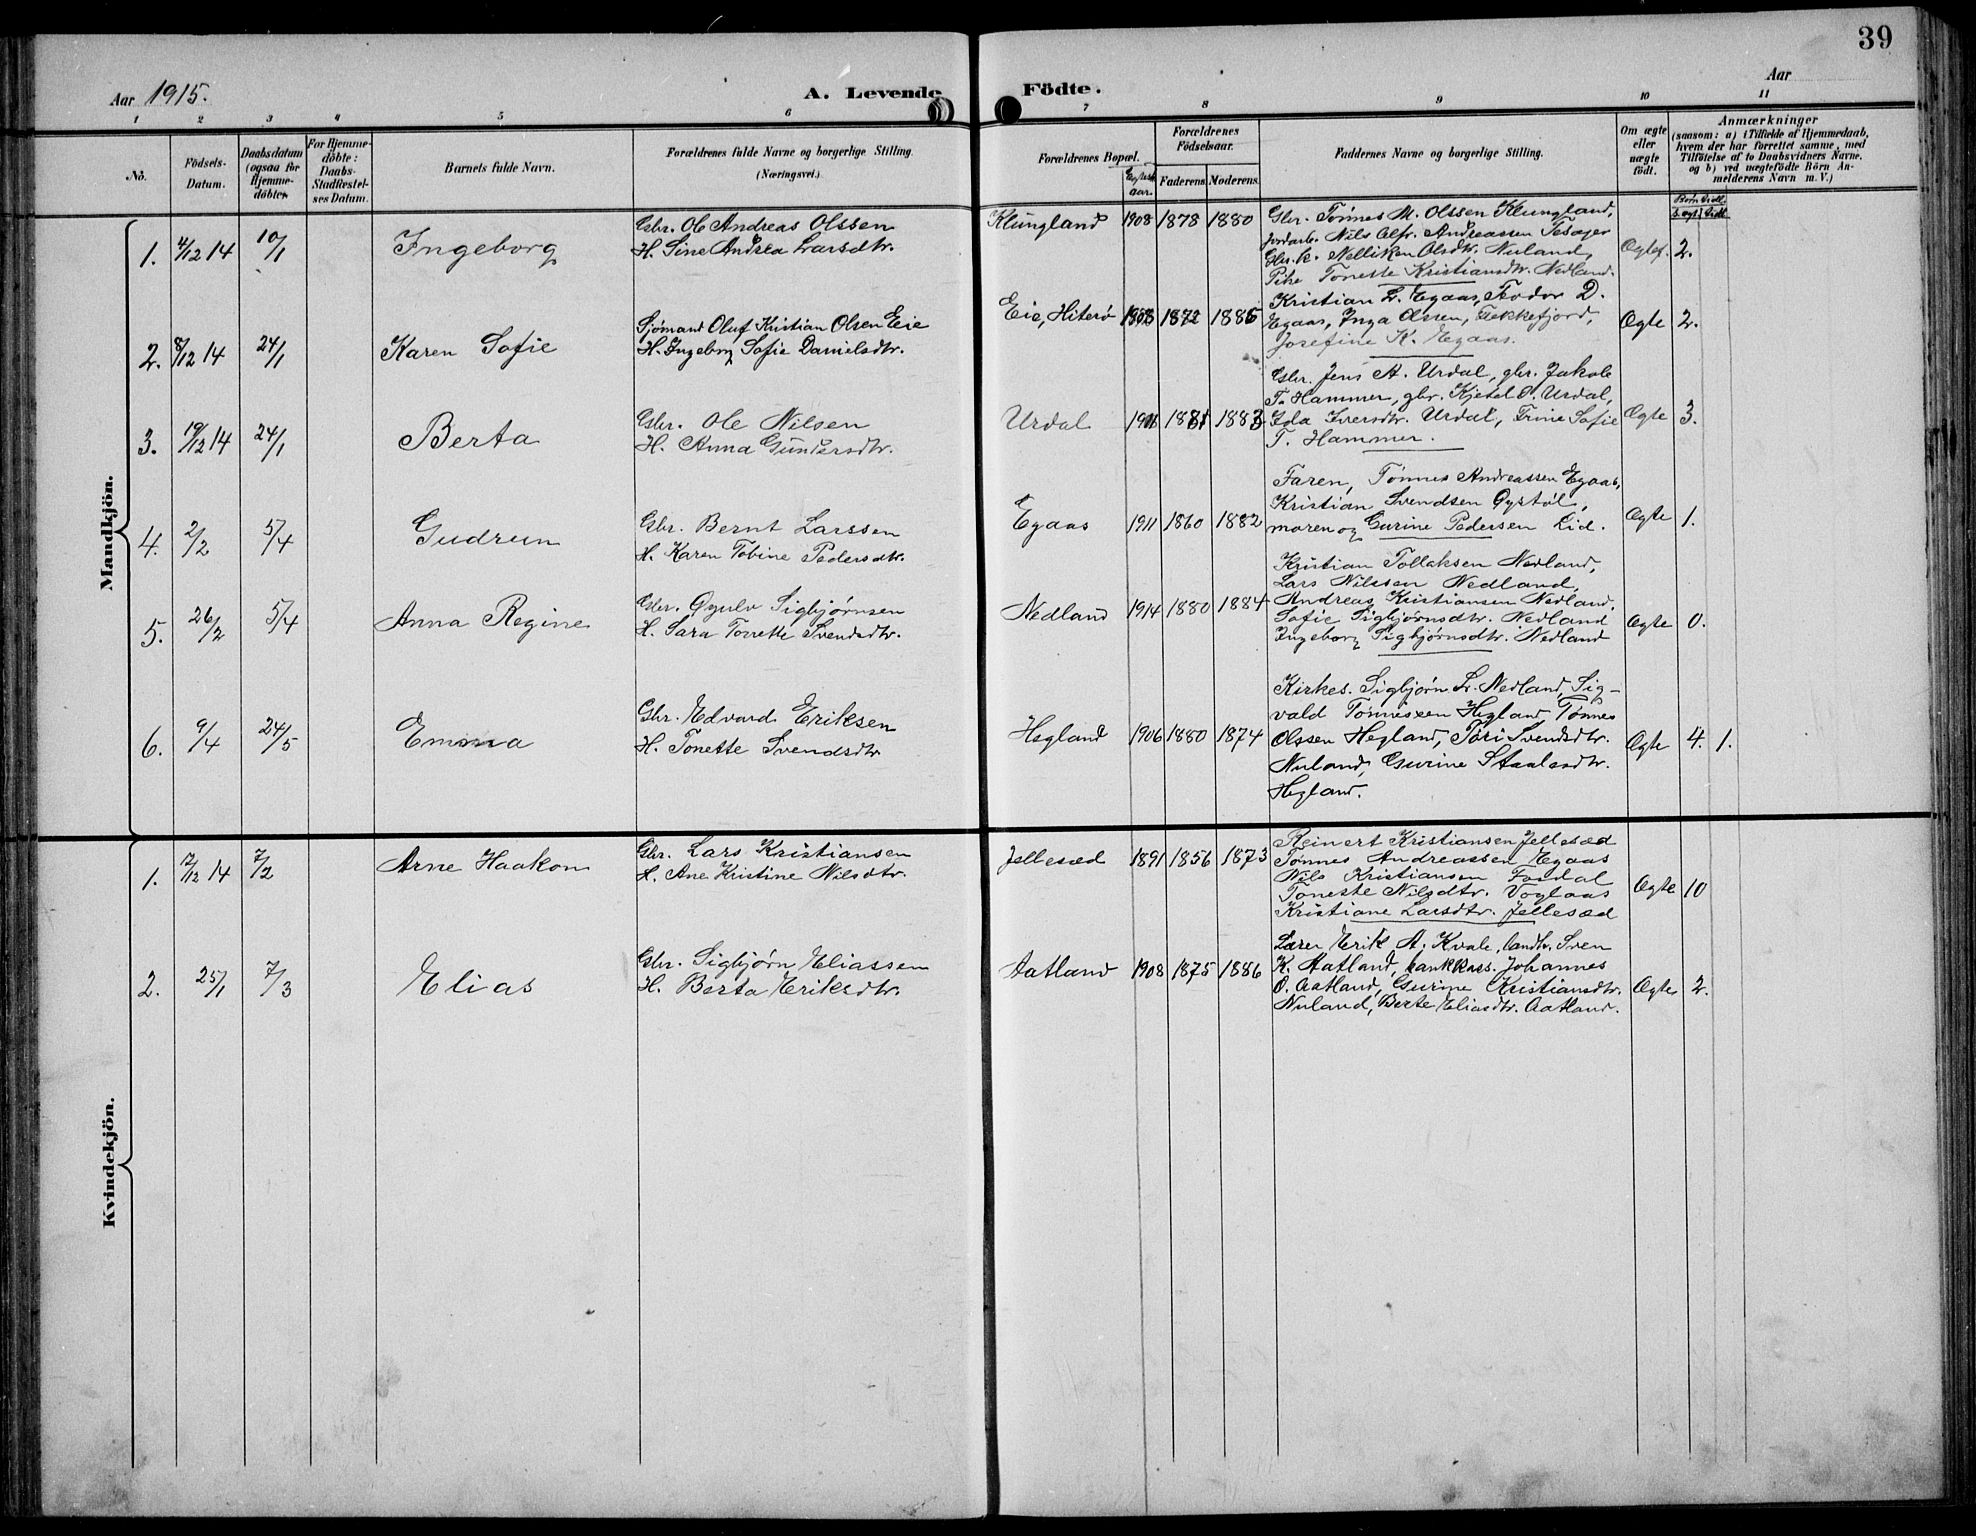 39
Aar 1915.
A. Levende
Födte.
Aar
1 2 3 4 5 6 7 8 9 10 11
No.
Födsels-
Datum.
Daabsdatum
(ogsaa for
Hjemme-
döbte).
For Hjemme-
döbte:
Daabs-
Stadfæstel-
ses Datum.
Barnets fulde Navn.
Forældrenes fulde Navne og borgerlige Stilling.
(Næringsvei.)
Forældrenes Bopæl.
Egtesk.
aar.
Forældrenes
Födselsaar.
Faderens. Moderens.
Faddernes Navne og borgerlige Stilling.
Om ægte
eller
uægte
födt.
Anmærkninger
(saasom: a) i Tilfælde af Hjemmedaab,
hvem der har forrettet samme, med
Tilföielse af to Daabsvidners Navne,
og b) ved uægtefödte Börn An-
melderens Navn m. V.)
Mandkjön.
1. 4/12 14 10/1 Ingeborg
Gbr. Ole Andreas Olssen
H. Sine Andrea Larsdtr.
Klungland 1908 1878 1880
Gbr. Tønnes M. Olssen Klungland,
Jordarb. Nils Alfr. Andreassen
Gbr. k. Nelliken Olsdtr. Nuland,
Pike Tonette Kristiansdtr. Nedland.
Ogtef. 2.
2. 8/12 14 24/1 Karen Sofie
Sjømand Oluf Kristian Olsen Eie
H. Ingeborg Sofie Danielsdtr.
Eie, Hiterø 1872 1885
Kristian L. Egaas, Fodor D.
Egaas, Inga Olssen, Flekkefjord,
Josefine K. Egaas.
Ægte 2.
3. 19/12 14 24/1 Berta
Gbr. Ole Nilsen
H. Anna Gundersdtr.
Urdal 1881 1883
Gbr. Jens A. Urdal, gbr. Jakob
T. Hammer, gbr. Kjetel O. Urdal,
Ida Iversdtr. Urdal, Trine Sofie
T. Hammer.
Ægte 3.
4. 2/2 5/4 Gudrun
Gbr. Bernt Larssen
H. Karen Tobine Pedersdtr.
Egaas 1911 1860 1882
Faren, Tønnes Andreassen Egaas,
Kristian Svendsen Øystøl,
moren og Gurine Pedersen Lid.
Ægte 1.
5. 26/2 5/4 Anna Regine
Gbr. Øgulv Sigbjørnsen
H. Sara Tonette Svendsdtr.
Nedland 1914 1880 1884
Kristian Tollaksen Nedland,
Lars Nilssen Nedland,
Andreas Kristiansen Nedland.
Sofie Sigbjørnsdtr. Nedland
Ingeborg Sigbjørnsdtr. Nedland
Ægte 0.
6. 9/4 24/5 Emma
Gbr. Edvard Eriksen
H. Tonette Svendsdtr
Hegland 1906 1880 1874
Kirkes. Sigbjørn L. Nedland, Sig-
vald Tønnessen Hegland, Tønnes
Olssen Hegland, Tori Svendsdtr.
Nuland, Gurine Staalesdtr.
Hegland.
Ægte 4. 1.
Kvindekjön.
1. 12/12 14 7/2 Arne Haakon
Gbr. Lars Kristiansen
H. Ane Kristine Nilsdtr.
Jellesæd 1891 1856 1873
Reinert Kristiansen Jellesæd
Tønnes Andreassen Egaas
Nils Kristiansen Fosdal
Toneste Nilsdtr. Voglaas
Kristiane Larsdtr. Jellesæd
Ægte 10
2. 25/1 7/3 Elias
Gbr. Sigbjørn Eliassen
H. Berta Eriksdtr.
Aatland 1908 1875 1886
Lærer Erik A. Kvale, landh. Sven
K. Aatland, bankkass. Johannes
O. Aatland, Gurine Kristiansdtr.
Nuland, Berte Eliasdtr. Aatland.
Ægte 2.